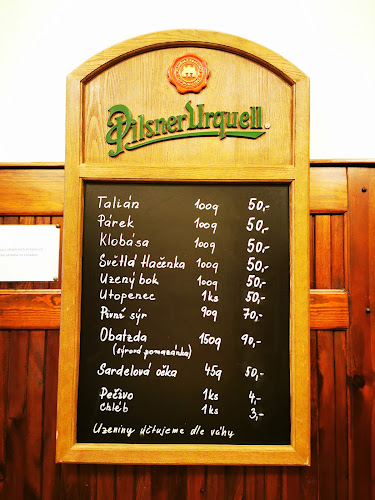 Pilsner Urquell
Talián 100g 50,-
Párek 100g 50,-
Klobása 100g 50,-
Světlá tlačenka 100g 50,-
Uzený bok 100g 50,-
Utopenec 1ks 50,-
Pivní sýr 90g 70,-
Obatzda 150g 90,-
(sýrová pomazánka)
Sardelová očka 45g 50,-
Pečivo 1ks 4,-
Chléb 1ks 3,-
Uzeniny účtujeme dle váhy